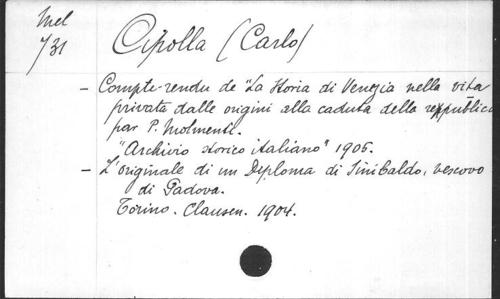 Mel
731
Cipolla (Carlo)
- Compte-rendu de "La Storia di Venezia nella vita
privata dalle origini alla caduta della reppublica
par P. Molmenti.
"Archivio storico italiano" 1905.
- L'originale di un Diploma di Sinibaldo, vescovo
di Padova.
Torino. Clausen. 1904.